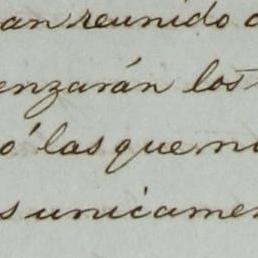 an reunido
enzarán los
ó las que n
s unicamen